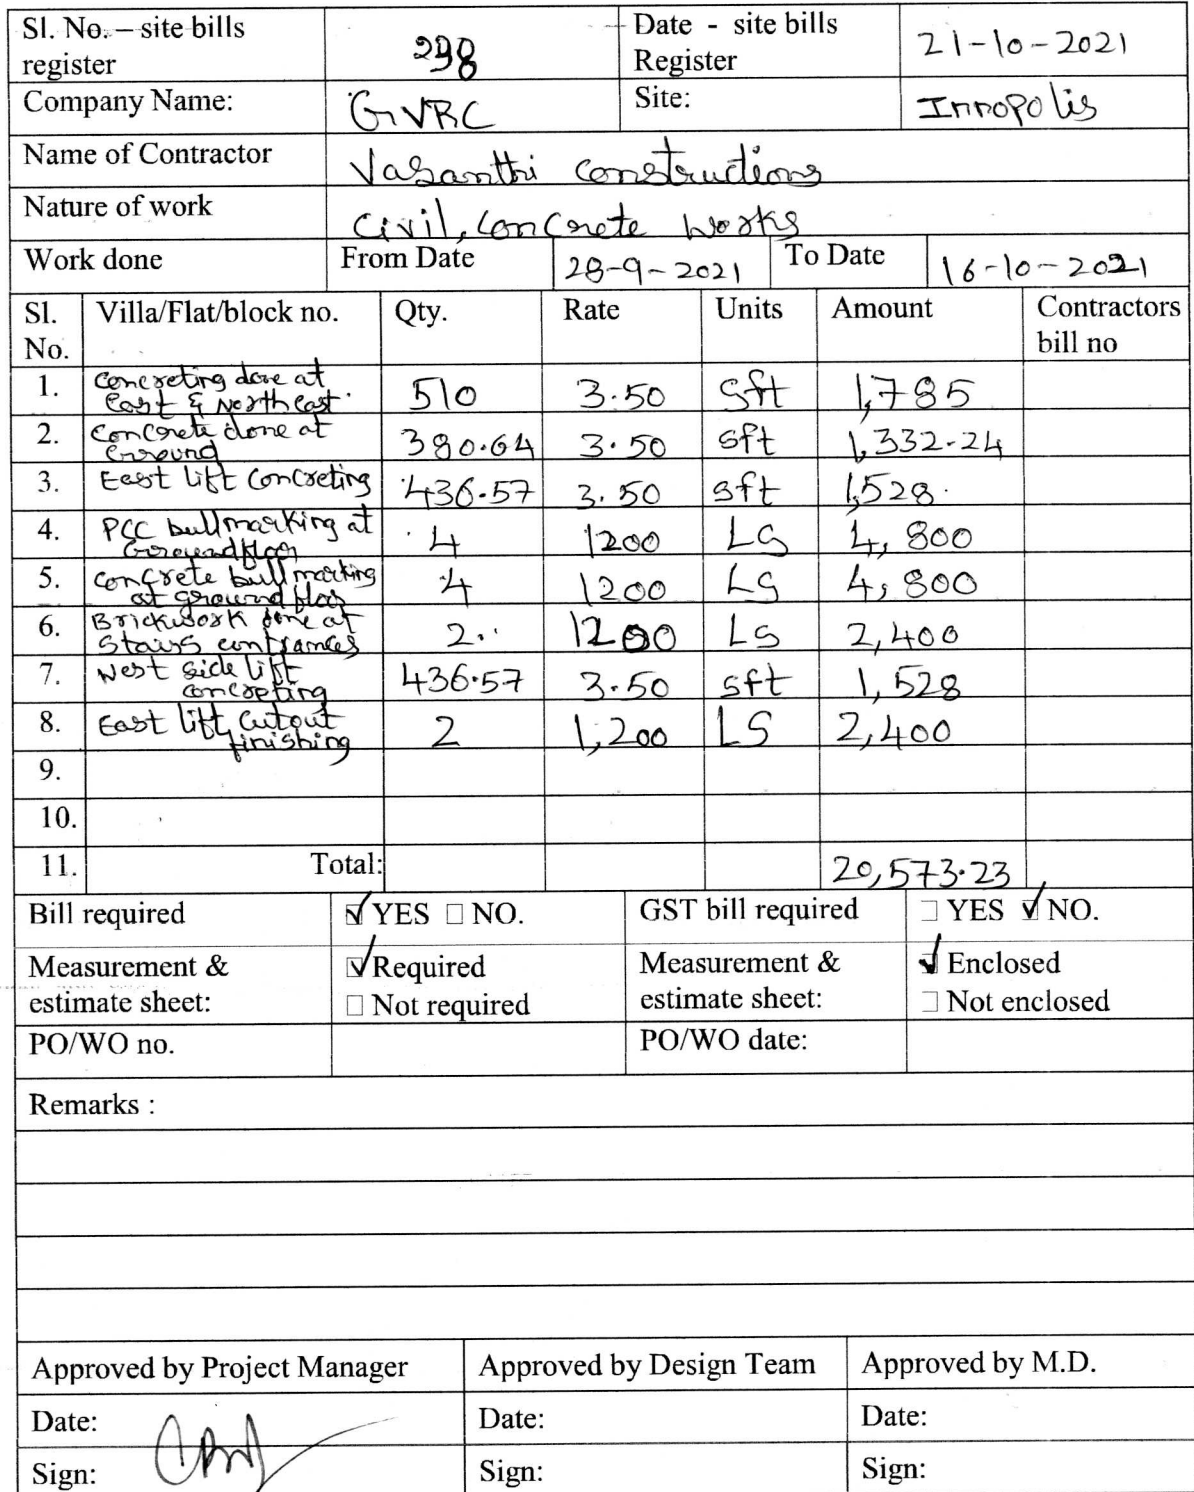 Sl. No. – site bills register 298 Date - site bills Register 21-10-2021
Company Name: GVRC Site: Innopolis
Name of Contractor Vasanthi constructions
Nature of work Civil, Concrete works
Work done From Date 28-9-2021 To Date 16-10-2021
Sl. No. Villa/Flat/block no. Qty. Rate Units Amount Contractors bill no
1. Concreting done at East & North East. 510 3.50 Sft 1,785
2. Concrete done at Ground 380.64 3.50 sft 1,332.24
3. East lift Concreting 436.57 3.50 sft 1,528.
4. PCC bullmarking at Groundfloor 4 1200 LS 4,800
5. Concrete bullmarking at ground floor 4 1200 LS 4,800
6. Brickwork done at Stairs entrances 2 1200 LS 2,400
7. West side lift concreting 436.57 3.50 sft 1,528
8. East lift Cutout finishing 2 1,200 LS 2,400
9.
10.
11. Total: 20,573.23
Bill required ☑ YES □ NO. GST bill required □ YES ☑ NO.
Measurement & estimate sheet: ☑ Required □ Not required Measurement & estimate sheet: ☑ Enclosed □ Not enclosed
PO/WO no. PO/WO date:
Remarks :
Approved by Project Manager Approved by Design Team Approved by M.D.
Date: Date: Date:
Sign: Sign: Sign: